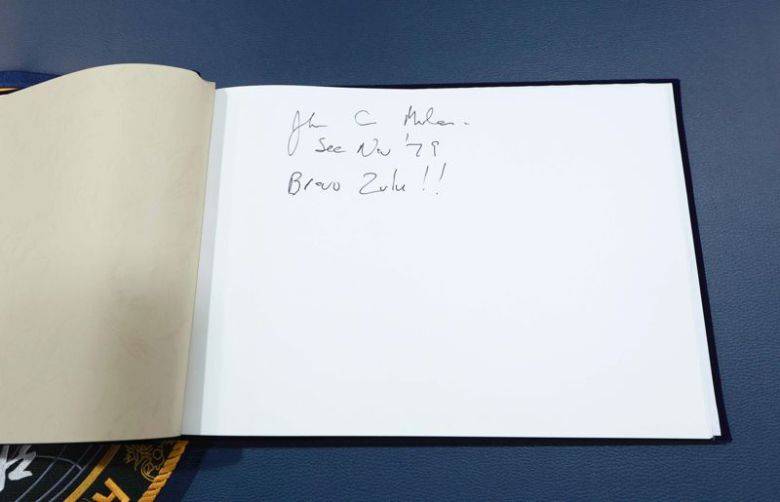 John C Phelan.
Sec Nav '79
Bravo Zulu!!